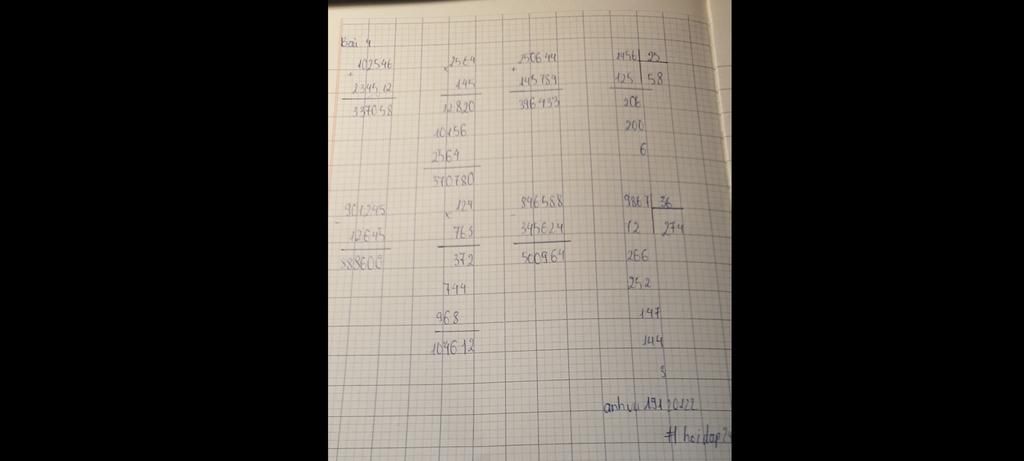 Bài 4
102546
+
234512
337058
2564
×
145
12820
10156
2564
370780
250644
+
145789
396433
1456 25
125 58
206
200
6
901245
-
12645
888600
124
×
763
372
744
968
104612
846588
-
345624
500964
9867 36
72 274
266
252
147
144
3
anhvu19120122
#hoidap2